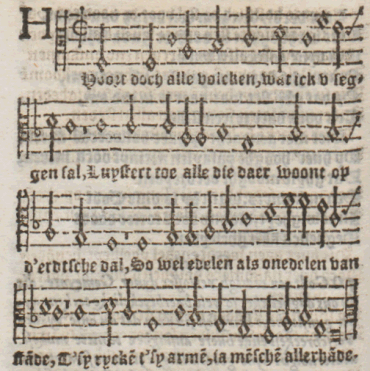 H
Hoort doch alle volcken, wat ick v seg-
gen sal, Luystert toe alle die daer woont op
d'erdtsche dal, So wel edelen als onedelen van
stāde, T'sy ryckē t'sy armē, ia mēschē allerhāde.